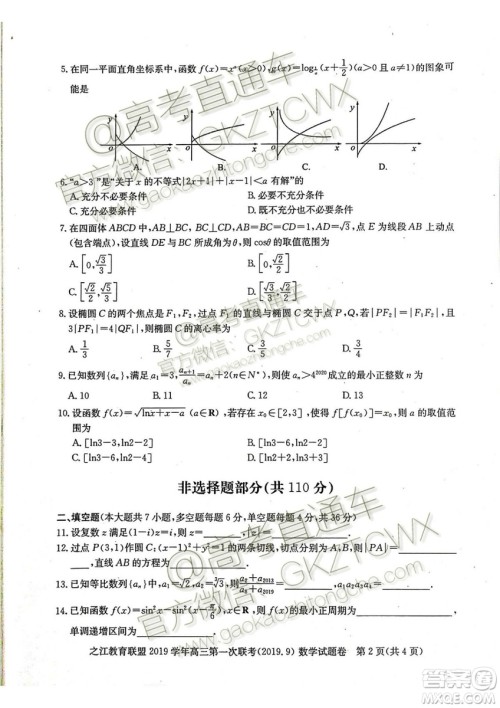 5. 在同一平面直角坐标系中，函数 f(x)=xᵃ(x>0)，g(x)=log_{1/a}(x+1/2)(a>0 且 a≠1)的图象可
能是
y x A. y x B. y x C. y x D.
6. "a>3"是"关于 x 的不等式|2x+1|+|x-1|<a 有解"的
A. 充分不必要条件 B. 必要不充分条件
C. 充要条件 D. 既不充分也不必要条件
7. 在四面体 ABCD 中，AB⊥BC，AB=BC=BD=CD=1，AD=√3，点 E 为线段 AB 上动点
(包含端点)，设直线 DE 与 BC 所成角为θ，则 cosθ的取值范围为
A. [0,√3/3] B. [0,√2/2]
C. [√2/2,√5/2] D. [√3/3,√2/2]
8. 设椭圆 C 的两个焦点是 F₁，F₂，过点 F₁ 的直线与椭圆 C 交于点 P，Q，若|PF₂|=|F₁F₂|，且
3|PF₁|=4|QF₁|，则椭圆 C 的离心率为
A. 1/3 B. 5/7 C. D. 3/4
9. 已知数列{aₙ}，满足 a₁=3，aₙ₊₁/aₙ=aₙ+2(n∈N*)，则使 aₙ>4²⁰²⁰成立的最小正整数 n 为
A. 10 B. 11 C. 12 D. 13
10. 设函数 f(x)=√(lnx+x-a) (a∈R)，若存在 x₀∈[2,3]，使得 f[f(x₀)]=x₀，则 a 的取值范
围为
A. [ln3-3,ln2-2] B. [ln3-6,ln2-2]
C. [ln3-6,ln2-4] D. [ln3-3,ln2-4]
非选择题部分(共 110 分)
二、填空题(本大题共 7 小题，多空题每题 6 分，单空题每题 4 分，共 36 分)
11. 复数 z 满足(1-i)z=i，则 z=______，|z|=______.
12. 过点 P(0,1)作圆 C:(x-1)²+y²=1 的两条切线，切点分别为 A，B，则|PA|=
______，直线 AB 的方程为______.
13. 已知等比数列{aₙ}中，a₁=√2，a₂=∛3，则=______，a₁a₂a₃a₄=______.
14. 已知函数 f(x)=sin²x-sin²(x-π/6)，x∈R，则 f(x)的最小正周期为______，
单调递增区间为______.
之江教育联盟 2019 学年高三第一次联考(2019.9) 数学试题卷 第 2 页(共 4 页)
@高考直通车
官方微信：GKZTCWX
www.gaokaozhitongche.com
@高考直通车
官方微信：GKZTCWX